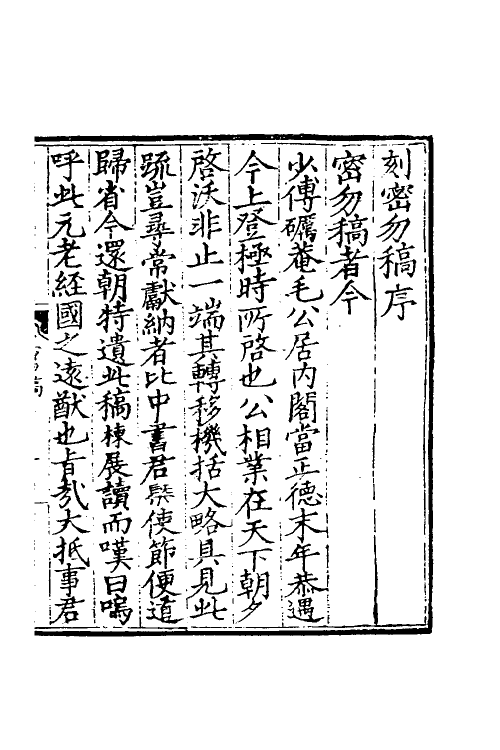 刻密勿稿序
密勿稿者今
少傅礪菴毛公居内閣當正德末年恭遇
今上登極時所啓也公相業在天下朝夕
啓沃非止一端其轉移機括大略具見此
疏豈尋常獻納者比中書君槩使節便道
歸省今還朝特遺此稿棟展讀而嘆曰嗚
呼此元老経國之遠猷也旨哉大抵事君